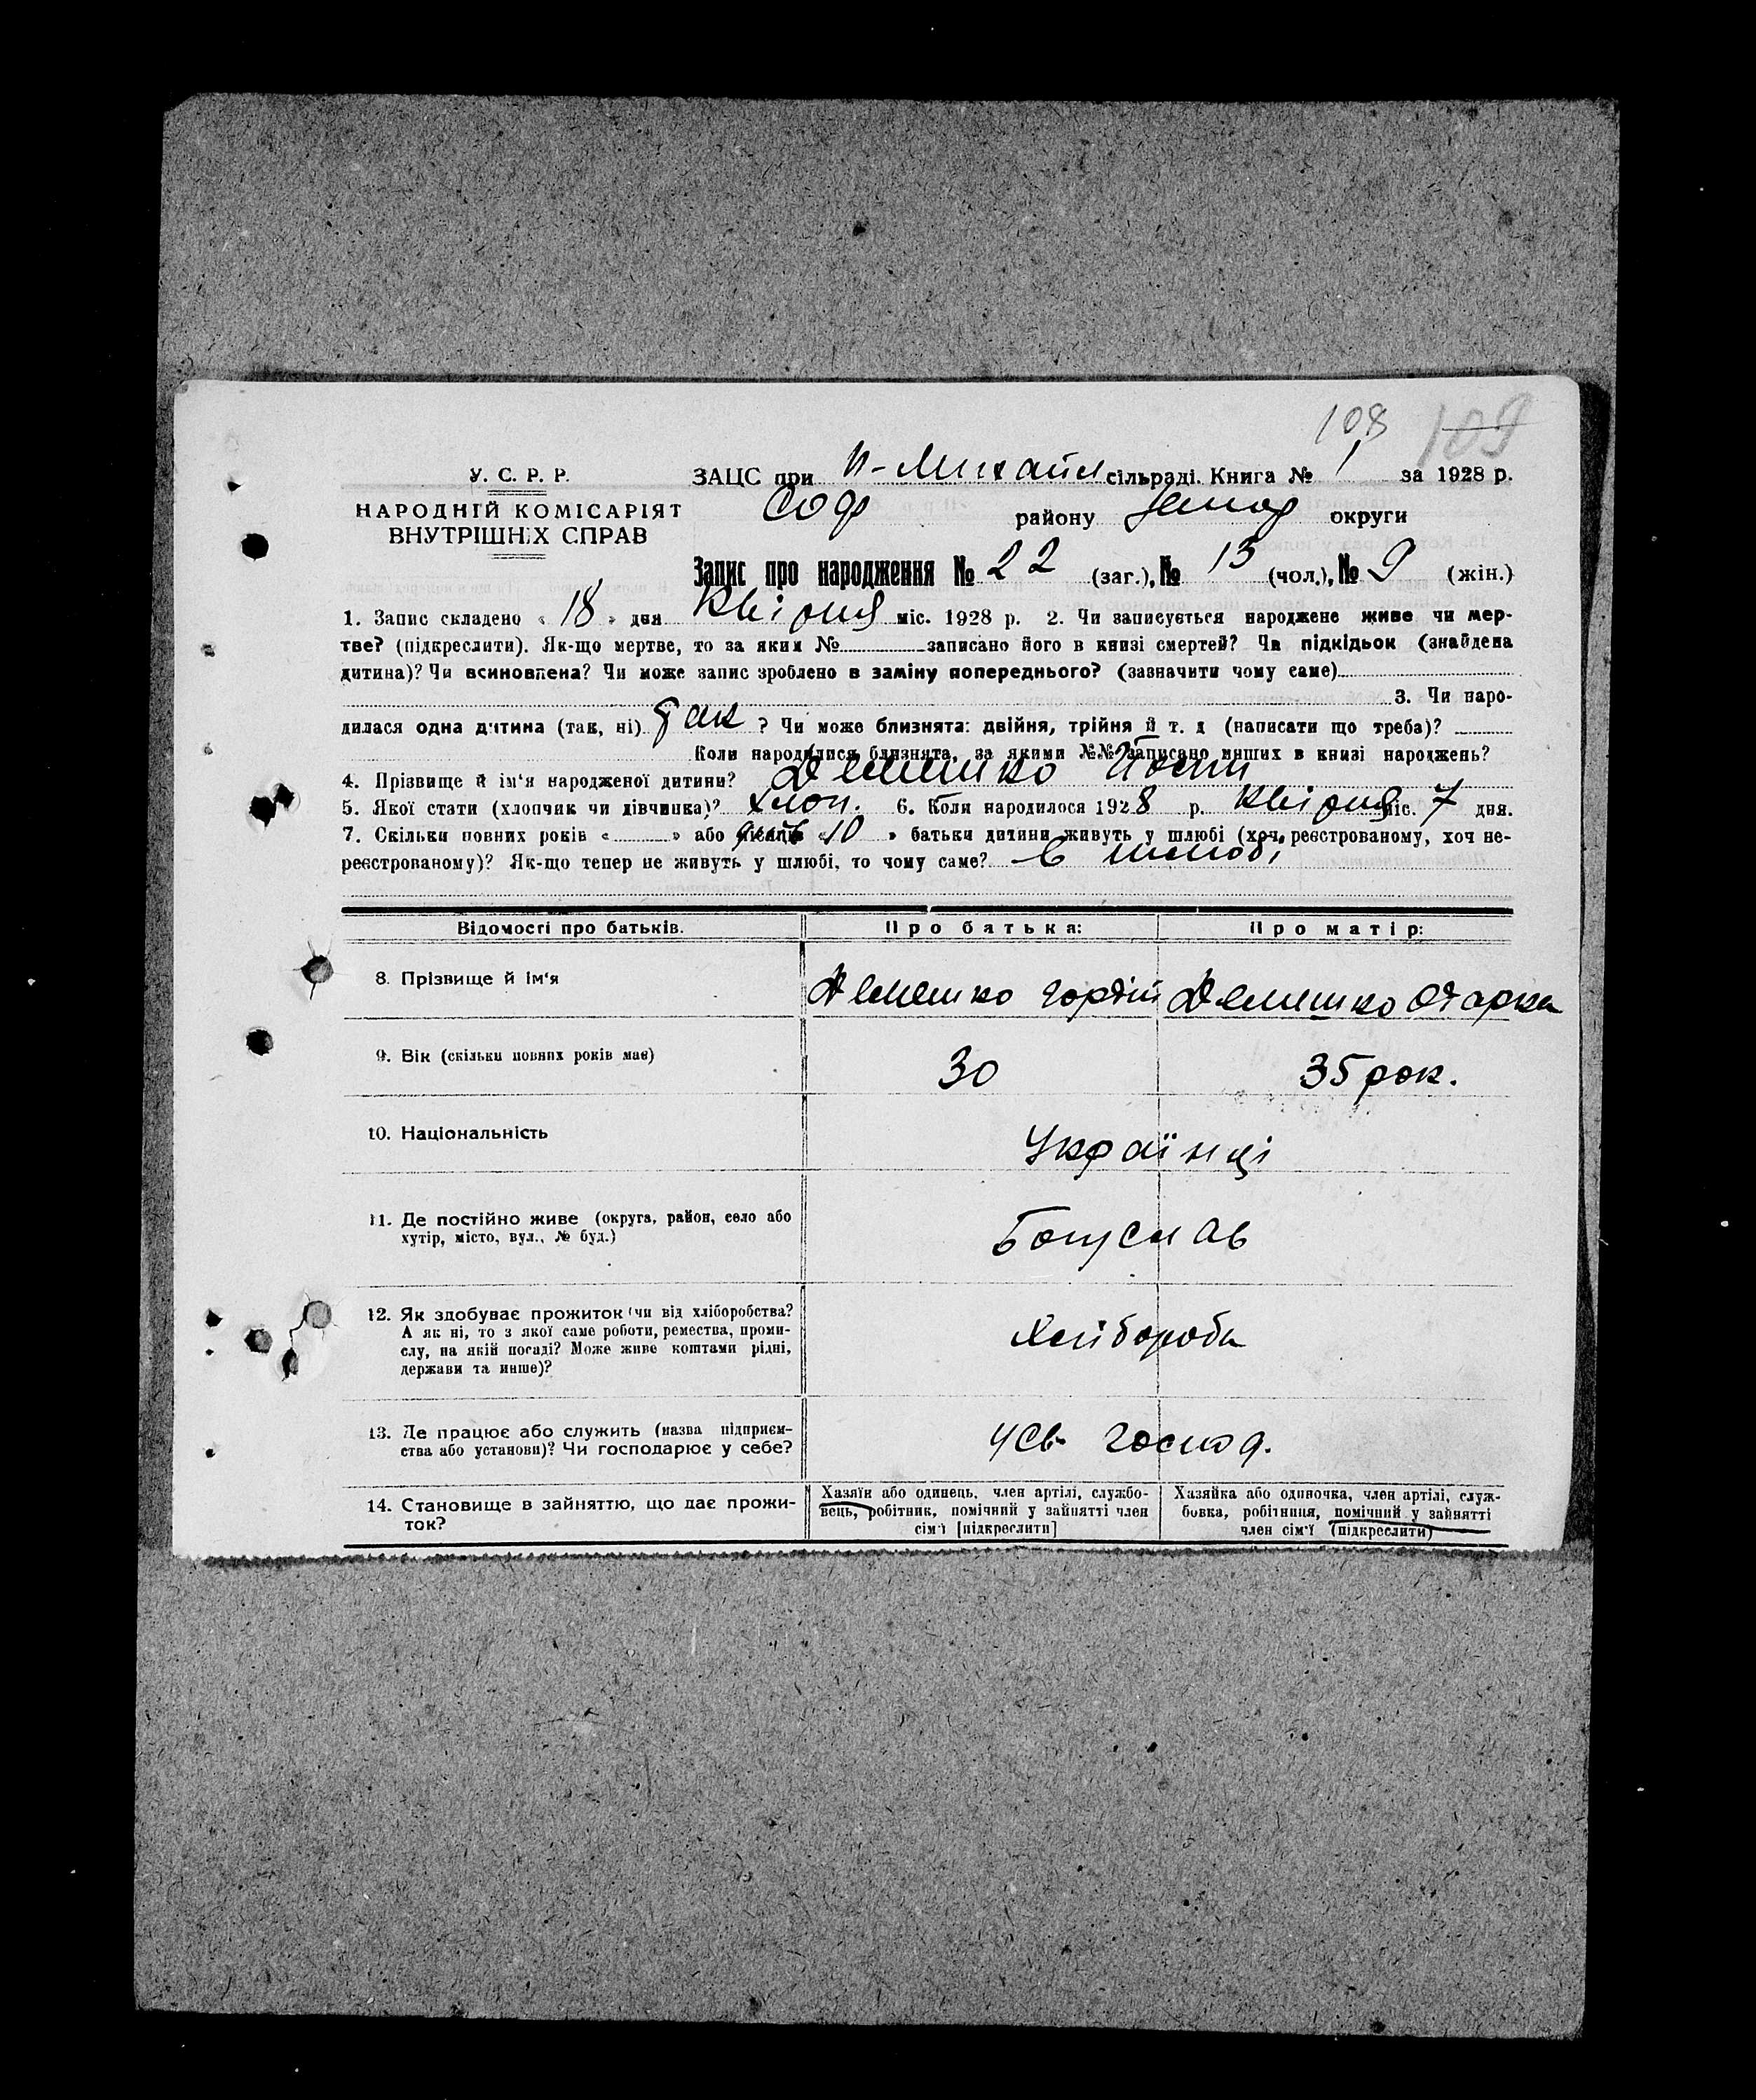 108 109
У. С. Р. Р.
НАРОДНІЙ КОМІСАРІЯТ
ВНУТРІШНІХ СПРАВ
ЗАЦС при Н-Михайл сільраді. Книга № 1 за 1928 р.
Соф району Запор округи
Запис про народження № 22 (заг.), № 13 (чол.), № 9 (жін.)
1. Запис складено « 18 » дня Квітня міс. 1928 р. 2. Чи записується народжене живе чи мер-
тве? (підкреслити). Як-що мертве, то за яким № записано його в книзі смертей? Чи підкідьок (знайдена
дитина)? Чи всиновлена? Чи може запис зроблено в заміну попереднього? (зазначити чому саме)
3. Чи наро-
дилася одна дитина (так, ні) так ? Чи може близнята: двійня, трійня й т. д (написати що треба)?
Коли народилися близнята, за якими №№ записано инших в книзі народжень?
4. Прізвище й ім'я народженої дитини? Демешко
5. Якої стати (хлопчик чи дівчинка)? хлоп. 6. Коли народилося 1928 р. Квітня міс. 7 дня.
7. Скільки повних років « » або « 10 » батьки дитини живуть у шлюбі (хоч реєстрованому, хоч не-
реєстрованому)? Як-що тепер не живуть у шлюбі, то чому саме? в шлюбі
Відомості про батьків. Про батька: Про матір:
8. Прізвище й ім'я Демешко Гордій Демешко Одарка
9. Вік (скільки повних років має) 30 35 рок.
10. Національність Українці
11. Де постійно живе (округа, район, село або
хутір, місто, вул., № буд.) Богуслав
12. Як здобуває прожиток (чи від хліборобства?
А як ні, то з якої саме роботи, ремества, проми-
слу, на якій посаді? Може живе коштами рідні,
держави та инше)? Хлібороби
13. Де працює або служить (назва підприєм-
ства або установи)? Чи господарює у себе? у св. госпо д.
14. Становище в зайняттю, що дає прожи-
ток?
Хазяїн або одинець, член артілі, службо-
вець, робітник, помічний у зайнятті член
сім'ї [підкреслити]
Хазяйка або одиночка, член артілі, служ-
бовка, робітниця, помічний у зайнятті
член сім'ї (підкреслити)